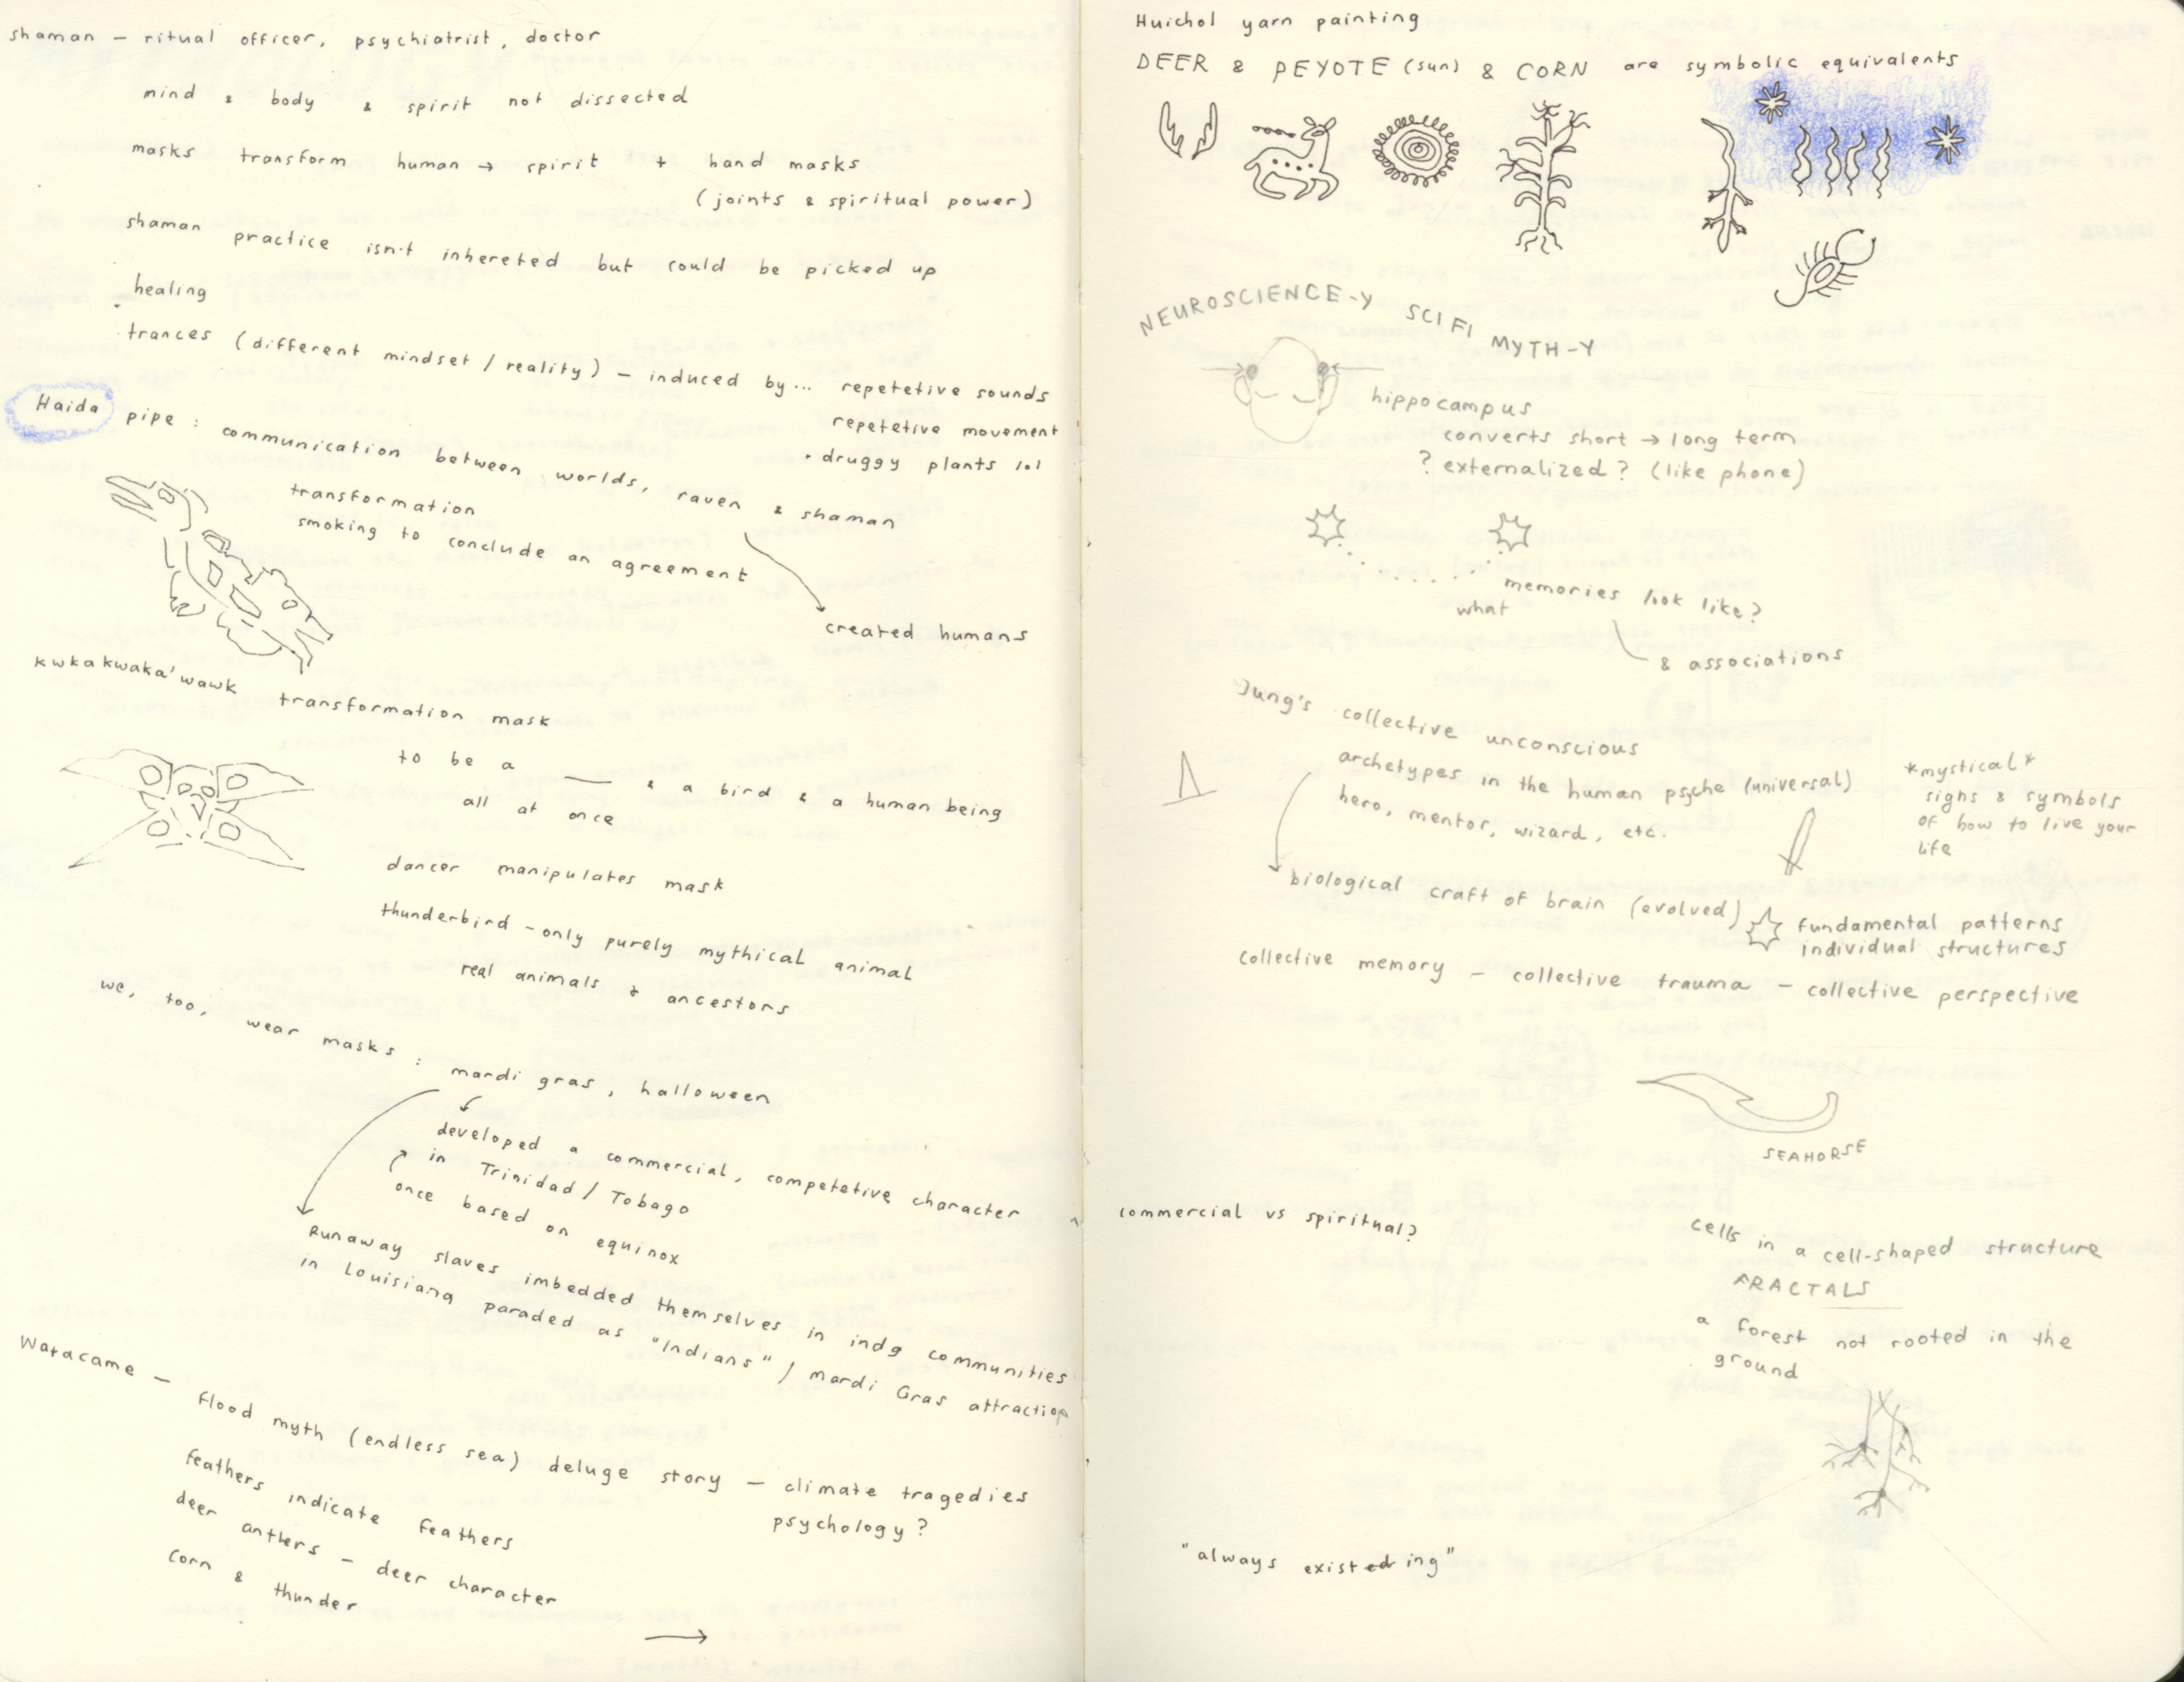 shaman — ritual officer, psychiatrist, doctor
mind & body & spirit not dissected
masks transform human → spirit + hand masks
(joints & spiritual power)
shaman practice isn't inhereted but could be picked up
healing
trances (different mindset / reality) — induced by... repetetive sounds
repetetive movement
• druggy plants lol
Haida pipe : communication between worlds, raven & shaman
transformation
smoking to conclude an agreement
created humans
kwkakwaka'wawk transformation mask
to be a ___ & a bird & a human being
all at once
dancer manipulates mask
thunderbird - only purely mythical animal
real animals & ancestors
we, too, wear masks : mardi gras, halloween
developed a commercial, competetive character
in Trinidad / Tobago
once based on equinox
Runaway slaves imbedded themselves in indg communities
in Louisiana paraded as "Indians" / Mardi Gras attraction
Watacame — flood myth (endless sea) deluge story — climate tragedies
psychology?
feathers indicate feathers
deer antlers — deer character
corn & thunder
→
Huichol yarn painting
DEER & PEYOTE (sun) & CORN are symbolic equivalents
NEUROSCIENCE-Y SCI FI MYTH-Y
hippocampus
converts short → long term
? externalized? (like phone)
what memories look like?
& associations
Jung's collective unconscious
archetypes in the human psyche (universal)
hero, mentor, wizard, etc.
*mystical*
signs & symbols
of how to live your
life
biological craft of brain (evolved)
fundamental patterns
individual structures
collective memory — collective trauma — collective perspective
SEAHORSE
commercial vs spiritual?
cells in a cell-shaped structure
FRACTALS
a forest not rooted in the
ground
"always existed ing"